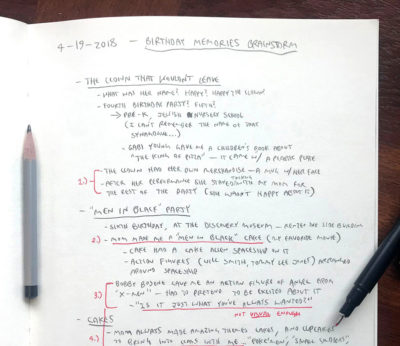 4-19-2018 - BIRTHDAY MEMORIES BRAINSTORM
- THE CLOWN THAT WOULDN'T LEAVE
- WHAT WAS HER NAME? HAPPY? HAPPY THE CLOWN?
- FOURTH BIRTHDAY PARTY? FIFTH?
→ PRE-K, JEWISH NURSERY SCHOOL
(I CAN'T REMEMBER THE NAME OF THAT
SYNAGOGUE...)
- GABE YOUNG GAVE ME A CHILDREN'S BOOK ABOUT
"THE KING OF PIZZA" - IT CAME W/ A PLASTIC PLATE
1.) - THE CLOWN HAD HER OWN MERCHANDISE - A MUG W/ HER FACE
- AFTER HER PERFORMANCE SHE STAYED TALKING WITH MY MOM FOR
THE REST OF THE PARTY (SHE WASN'T HAPPY ABOUT IT)
- "MEN IN BLACK" PARTY
- SIXTH BIRTHDAY, AT THE DISCOVERY MUSEUM - RENTED THE SIDE BUILDING
2.) - MOM MADE ME A "MEN IN BLACK" CAKE (MY FAVORITE MOVIE)
- CAKE HAD A CAKE ALIEN SPACESHIP ON IT
- ACTION FIGURES (WILL SMITH, TOMMY LEE JONES) ARRANGED
AROUND SPACESHIP
3.) - BOBBY GAVE ME AN ACTION FIGURE OF ANGEL FROM
"X-MEN" - HAD TO PRETEND TO BE EXCITED ABOUT IT
- "IS IT JUST WHAT YOU'VE ALWAYS WANTED?"
NOT VISUAL ENOUGH
- CAKES
4.) - MOM ALWAYS MADE AMAZING THEMED CAKES, AND CUPCAKES
TO BRING INTO CLASS WITH ME - "POKEMON", "SMALL SOLDIERS",